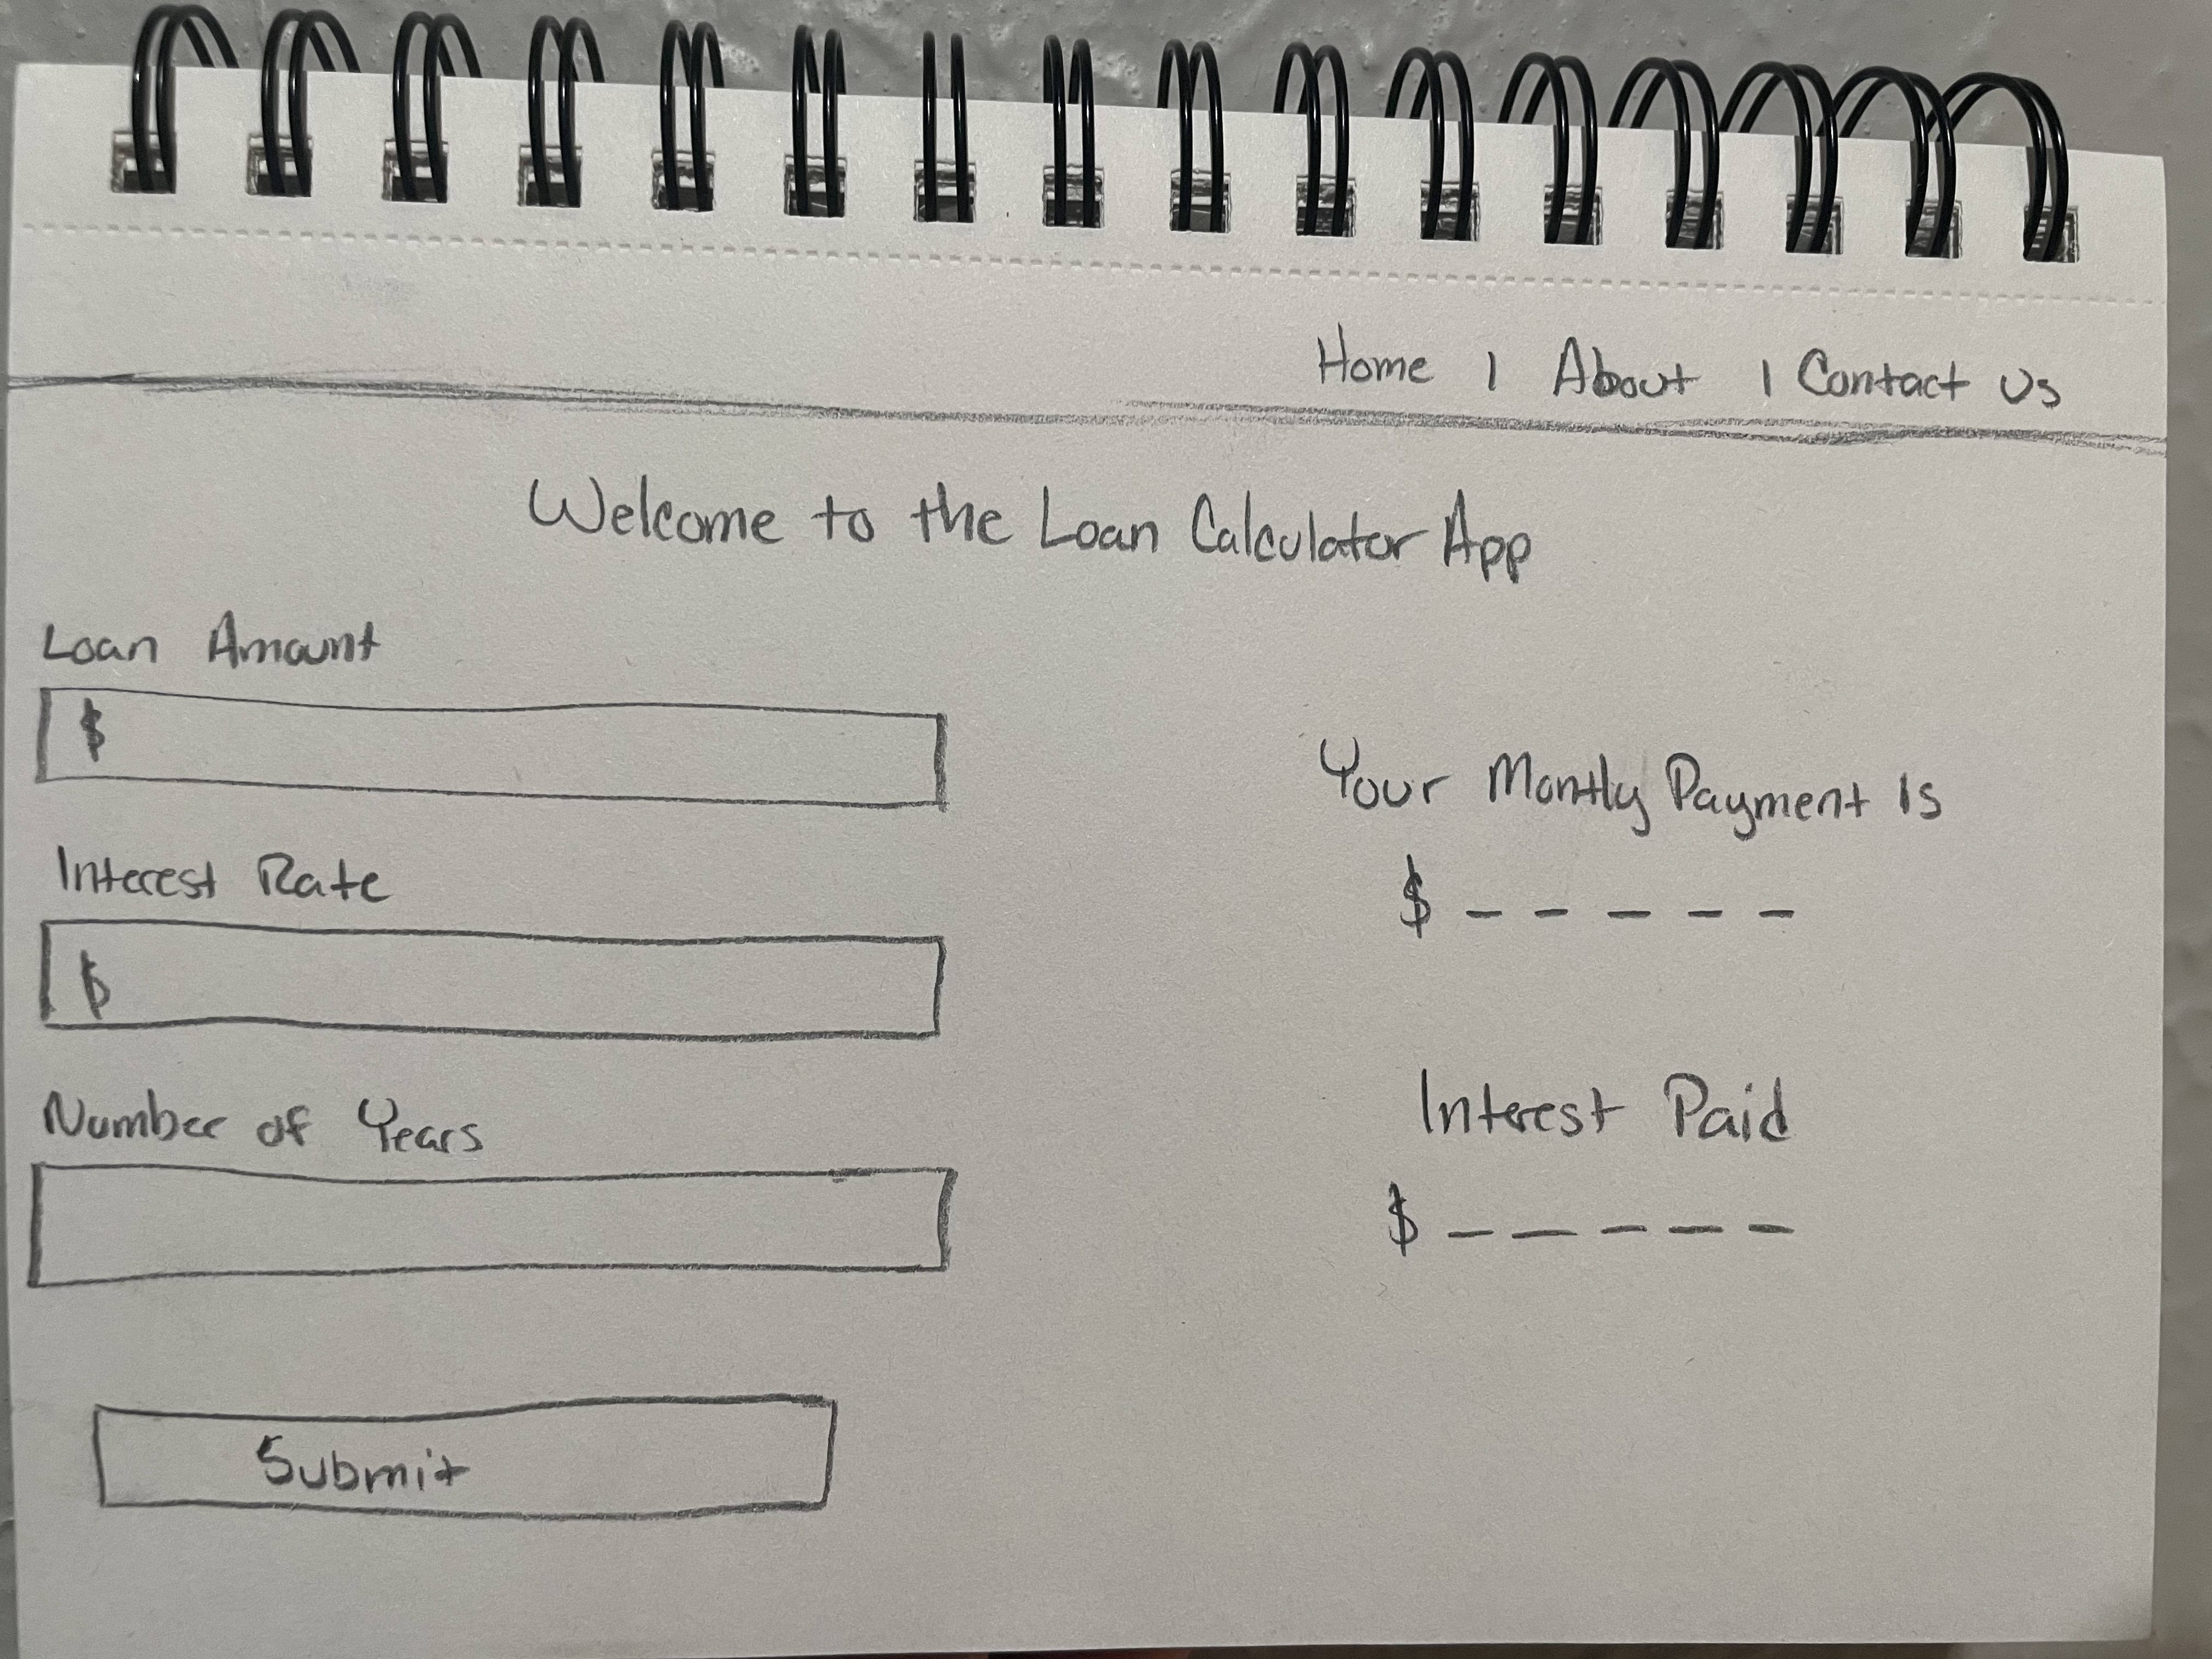 Home | About | Contact Us
Welcome to the Loan Calculator App
Loan Amount
$
Interest Rate
$
Number of Years
Submit
Your Montly Payment Is
$ - - - - -
Interest Paid
$ - - - - -